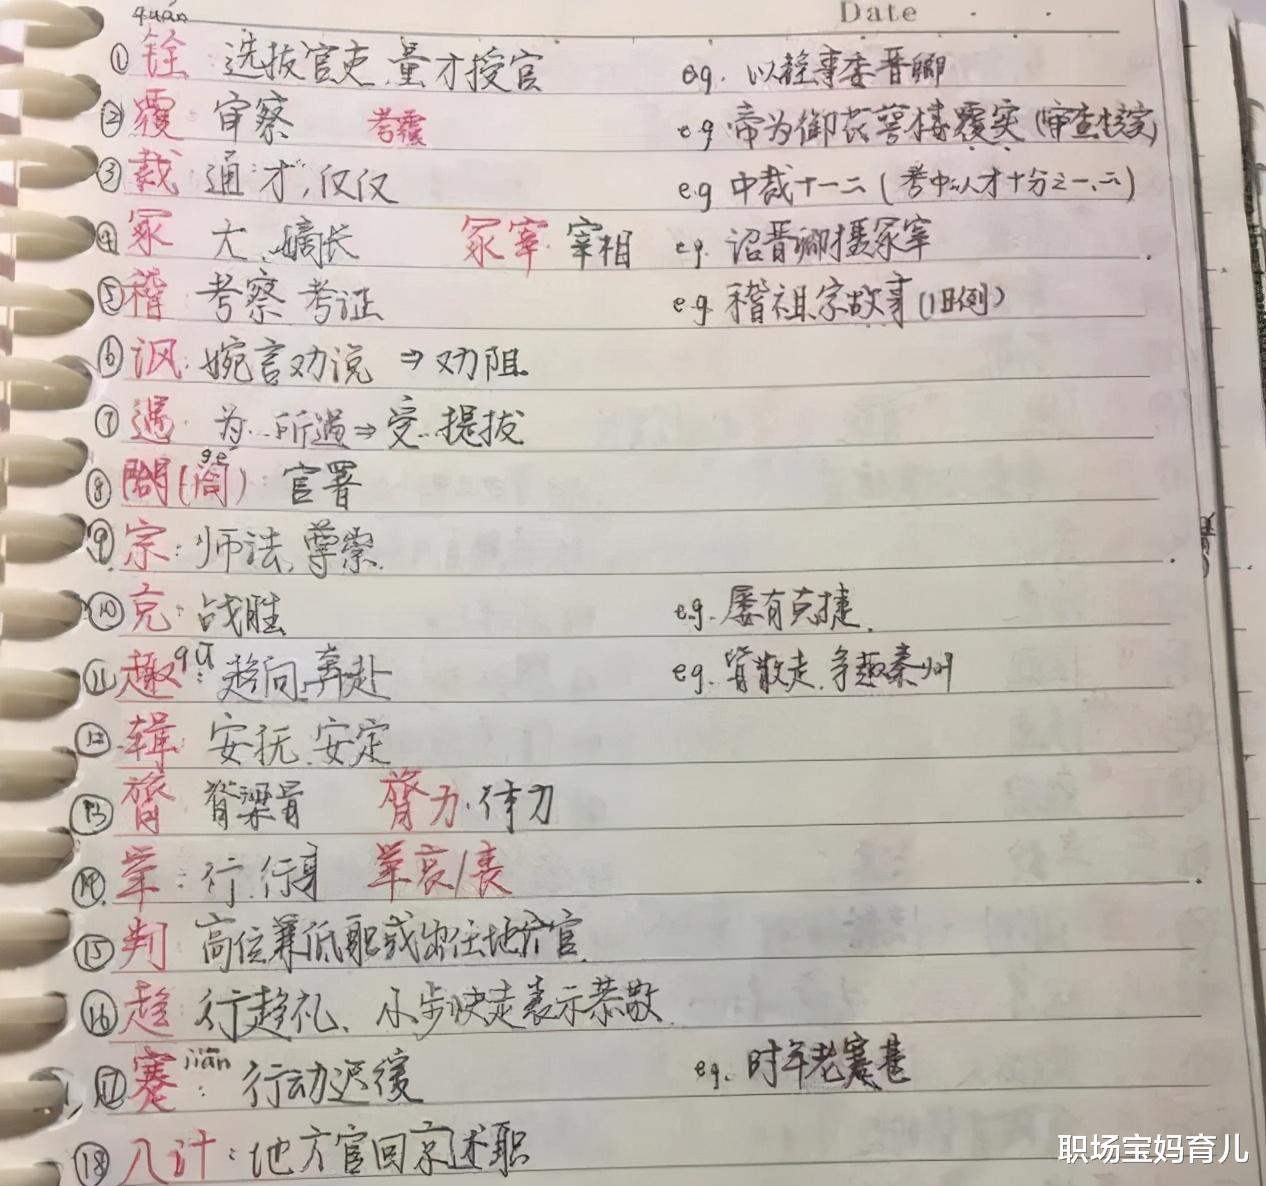 Date
quán
①铨：选拔官吏，量才授官 e.g. 以铨事委晋卿
②覆 审察 考覆 e.g 帝为御花萼楼覆实（审查核实）
③裁 通“才”，仅仅 e.g 中裁十一二（考中人才十分之一、二）
④冢 大、嫡长 冢宰 宰相 e.g. 诏晋卿摄冢宰
⑤稽：考察 考证 e.g. 稽祖宗故事（旧例）
⑥讽：婉言劝说 ⇒ 劝阻
⑦遇 为…所遇⇒受…提拔
gé
⑧閤（阁）：官署
⑨宗：师法，尊崇
⑩克：战胜 e.g. 屡有克捷
⑪趣qū：趋向，奔赴 e.g. 皆散走，争趣秦州
⑫辑 安抚、安定
⑬膂 脊梁骨 膂力：体力
⑭举：行，行事 举哀/丧
⑮判 高位兼低职或出任地方官
⑯趋 行趋礼、小步快走表示恭敬
⑰蹇jiǎn：行动迟缓 e.g. 时年老蹇甚
⑱入计：地方官回京述职
职场宝妈育儿